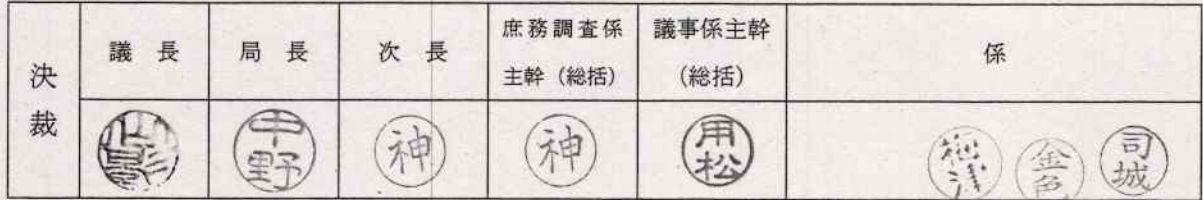 決裁
議長
局長
次長
庶務調査係
主幹（総括）
議事係主幹
（総括）
係
中野
神
神
用松
金色
司城